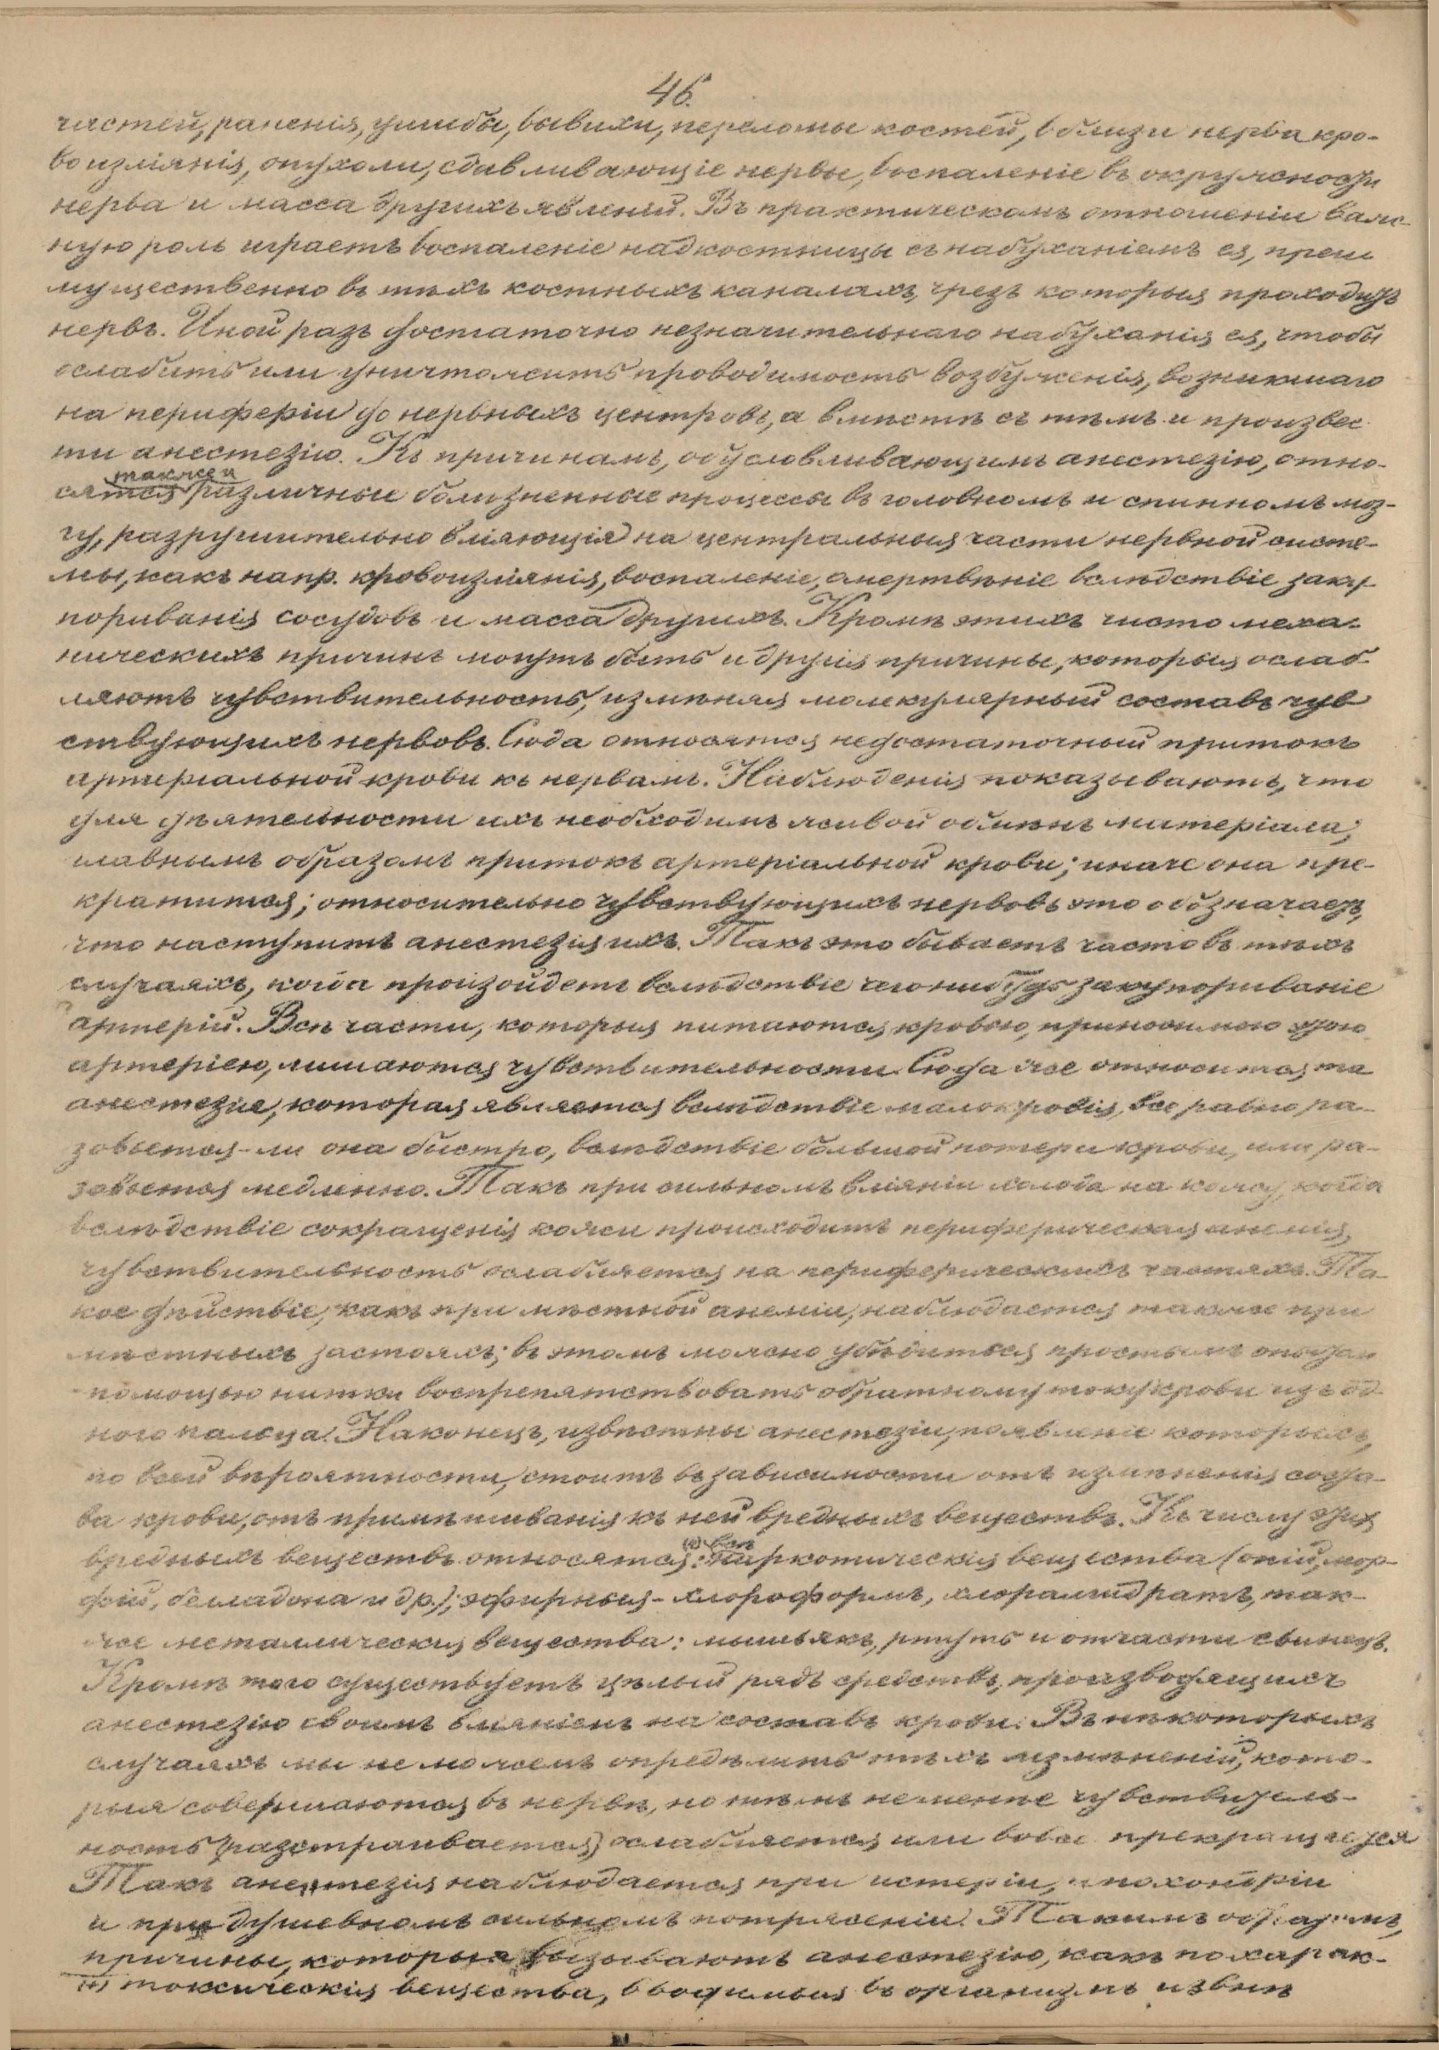 46.
частей, раненія, ушибы, вывихи, переломы костей, вблизи нерва кро-
воизліянія, опухоли, сдавливающіе нервы, воспаленіе въ окружности
нерва и масса другихъ явленій. Въ практическомъ отношеніи важ-
ную роль играетъ воспаленіе надкостницы съ набуханіемъ ея, преи
мущественно въ тѣхъ костныхъ каналахъ, чрезъ которыя проходитъ
нервъ. Иной разъ достаточно незначительнаго набуханія ея, чтобы
ослабить или уничтожить проводимость возбужденія, возникшаго
на периферіи до нервныхъ центровъ, а вмѣстѣ съ тѣмъ и произвес
ти анестезію. Къ причинамъ, обусловливающимъ анестезію, отно-
также и
сятся различные болѣзненные процессы въ головномъ и спинномъ моз-
гу, разрушительно вліяющія на центральныя части нервной систе-
мы, какъ напр. кровоизліянія, воспаленіе, омертвѣніе вслѣдствіе заку-
пориванія сосудовъ и масса другихъ. Кромѣ этихъ чисто меха-
ническихъ причинъ могутъ быть и другія причины, которыя ослаб-
ляютъ чувствительность, измѣняя молекулярный составъ чув
ствующихъ нервовъ. Сюда относятся недостаточный притокъ
артеріальной крови къ нервамъ. Наблюденія показываютъ, что
для дѣятельности ихъ необходимъ живой обмѣнъ матеріала,
главнымъ образомъ притокъ артеріальной крови; иначе она пре-
кратится; относительно чувствующихъ нервовъ это обозначаетъ,
что наступитъ анестезія ихъ. Такъ это бываетъ часто въ тѣхъ
случаяхъ, когда произойдетъ вслѣдствіе чего нибудь закупориваніе
артерій. Всѣ части, которыя питаются кровью, приносимою этою
артеріею, лишаются чувствительности. Сюда же относится та
анестезія, которая является вслѣдствіе малокровія, все равно ра-
зовьется-ли она быстро, вслѣдствіе большой потери крови, или ра-
зовьется медленно. Такъ при сильномъ вліяніи холода на кожу, когда
вслѣдствіе сокращенія кожи происходитъ периферическая анемія,
чувствительность ослабляется на периферическихъ частяхъ. Та-
кое дѣйствіе, какъ при мѣстной анеміи, наблюдается также при
мѣстныхъ застояхъ; въ этомъ можно убѣдиться простымъ опытомъ
помощью нитки воспрепятствовать обратному току крови изъ од
ного пальца. Наконецъ, извѣстны анестезіи, появленіе которыхъ,
по всей вѣроятности, стоитъ въ зависимости отъ измѣненія соста-
ва крови, отъ примѣшиванія къ ней вредныхъ веществъ. Къ числу этихъ
вредныхъ веществъ относятся: наркотическія вещества (опій, мор-
фій, белладона и др.), эфирныя-хлороформъ, хлоралгидратъ, так-
же металлическія вещества: мышьякъ, ртуть и отчасти свинецъ.
Кромѣ того существуетъ цѣлый рядъ средствъ, производящихъ
анестезію своимъ вліяніемъ на составъ крови. Въ нѣкоторыхъ
случаяхъ мы не можемъ опредѣлить тѣхъ измѣненій, кото-
рыя совершаются въ нервѣ, но тѣмъ неменѣе чувствитель-
ность (разстраивается) ослабляется или вовсе прекращается
Такъ анестезія наблюдается при истеріи, ипохондріи
и при душевномъ сильномъ потрясеніи. Такимъ образомъ,
причины, которыя вызываютъ анестезію, какъ по харак-
(*) токсическія вещества, вводимыя въ организмъ извнѣ